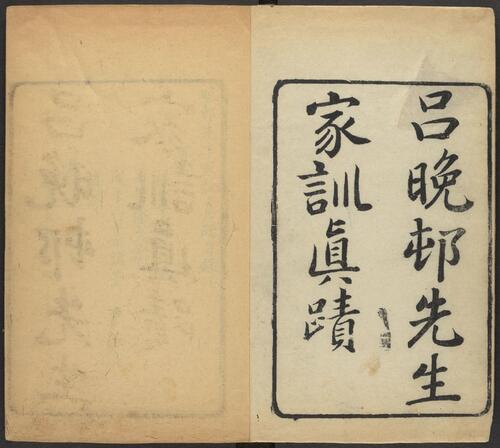 吕晚邨先生
家訓眞蹟